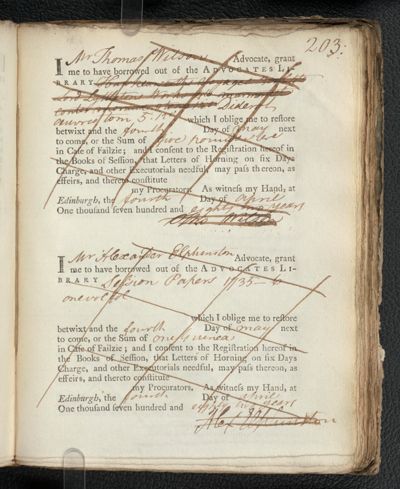 203:
I Mr Thomas Wilson Advocate, grant
me to have borrowed out of the ADVOCATES LI-
BRARY
Diderot
tom 5.
which I oblige me to restore
betwixt and the fourth Day of May next
to come, or the Sum of five pounds
in Case of Failzie; and I consent to the Registration hereof in
the Books of Session, that Letters of Horning on six Days
Charge, and other Executorials needful, may pass thereon, as
effeirs, and thereto constitute
my Procurators. As witness my Hand, at
Edinburgh, the fourth Day of April
One thousand seven hundred and eighty one years
Tho Wilson
I Mr Alexander Elphinston Advocate, grant
me to have borrowed out of the ADVOCATES LI-
BRARY Session Papers 1735-6
one vol
which I oblige me to restore
betwixt and the fourth Day of May next
to come, or the Sum of one guinea
in Case of Failzie; and I consent to the Registration hereof in
the Books of Session, that Letters of Horning on six Days
Charge, and other Executorials needful, may pass thereon, as
effeirs, and thereto constitute
my Procurators. As witness my Hand, at
Edinburgh, the fourth Day of April
One thousand seven hundred and eighty one years
Alex Elphinston